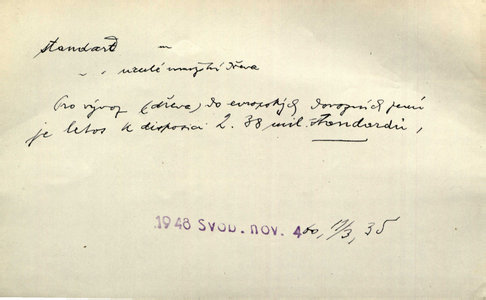 standard —
„ , určité množství dřeva
Pro vývoz (dřeva) do evropských dovozních zemí
je letos k disposici 2.38 mil. standardů,
1948 Svob. nov. 460, 17/3, 35